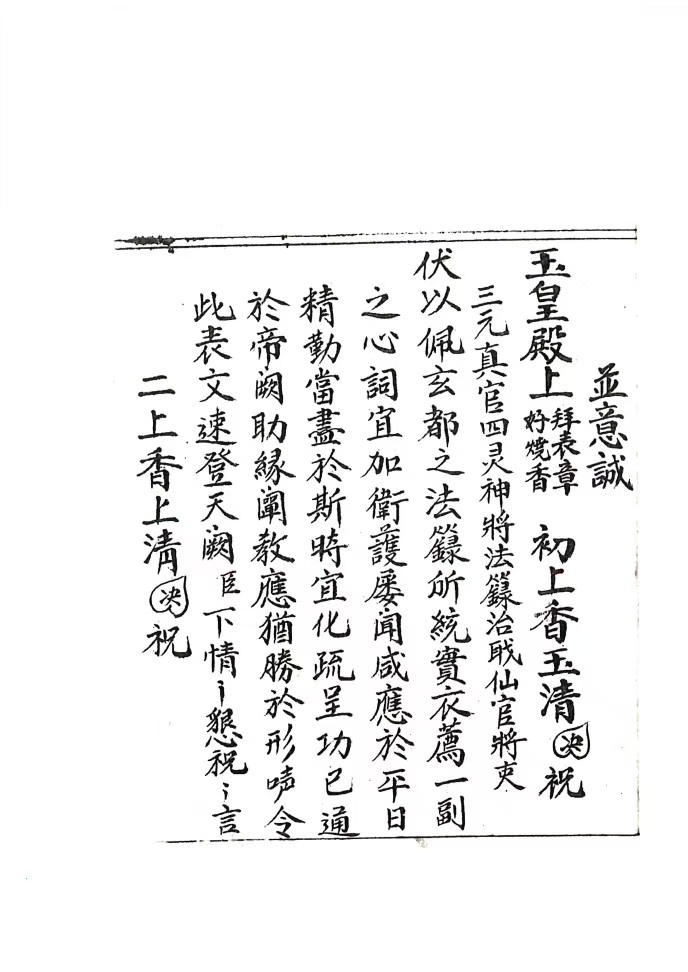 並意誠
玉皇殿上拜表章好燒香 初上香玉清決祝
三元真官四灵神將法籙治戝仙官將吏
伏以佩玄都之法籙所統實衣薦一副
之心詞宜加衛護屡聞咸應於平日
精勤當盡於斯時宜化疏呈功已通
於帝阙助緣闡教應猶勝於形啼令
此表文速登天阙臣下情〻懇祝〻言
二上香上清決祝